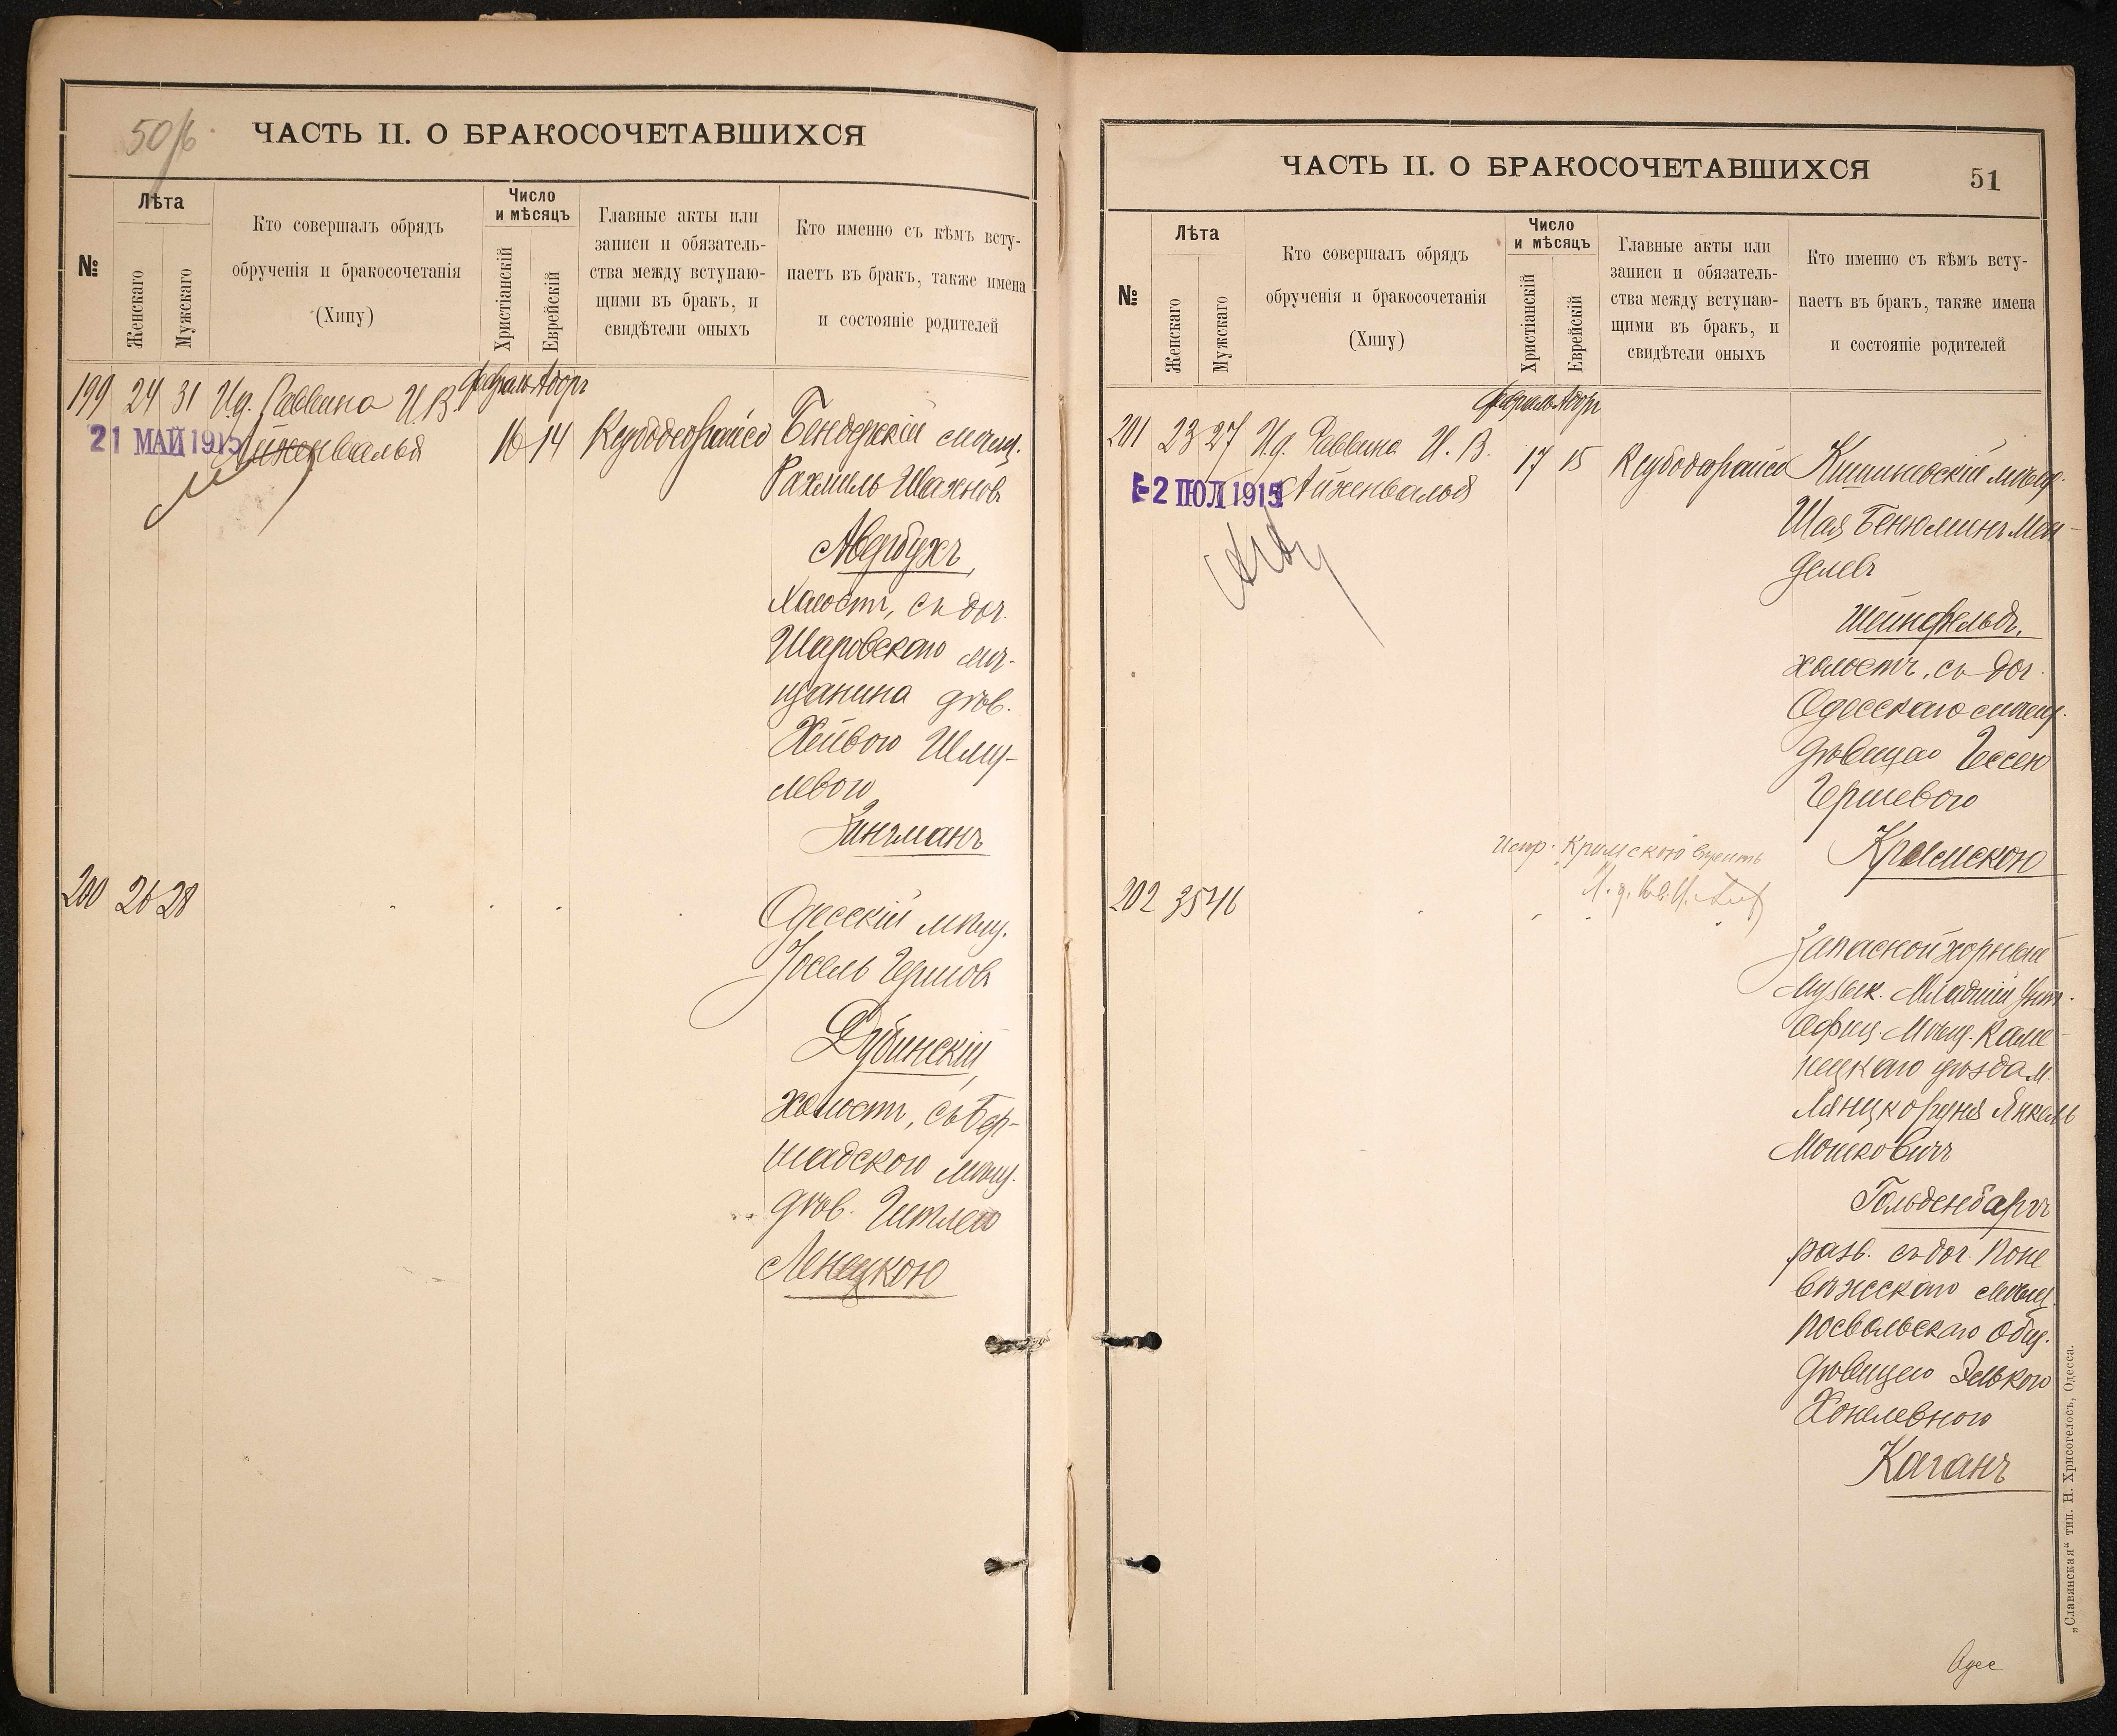 50/б
ЧАСТЬ II. О БРАКОСОЧЕТАВШИХСЯ
№
Лѣта
Женскаго
Мужскаго
Кто совершалъ обрядъ
обрученія и бракосочетанія
(Хипу)
Число
и мѣсяцъ
Христіанскій
Еврейскій
Главные акты или
записи и обязатель-
ства между вступаю-
щими въ бракъ, и
свидѣтели оныхъ
Кто именно съ кѣмъ всту-
паетъ въ бракъ, также имена
и состояніе родителей
Февраль Адоръ
199 24 31 И. д. Раввина И. В.
21 МАЙ 1915
Айзенвальд
16 14
Бендерскій мѣщ.
Рахмиль Шахнов
Авербухъ,
холостъ, съ доч.
Шаровскаго мѣ-
щанина дѣв.
Хейвою Шму-
левою
Зингманъ
200 26 28
Одесскій мѣщ.
Іосель Гершов
Дубинскій,
холостъ, съ Бер-
шадскою мѣщ.
дѣв. Гитлею
Ленецкою
ЧАСТЬ II. О БРАКОСОЧЕТАВШИХСЯ
51
№
Лѣта
Женскаго
Мужскаго
Кто совершалъ обрядъ
обрученія и бракосочетанія
(Хипу)
Число
и мѣсяцъ
Христіанскій
Еврейскій
Главные акты или
записи и обязатель-
ства между вступаю-
щими въ бракъ, и
свидѣтели оныхъ
Кто именно съ кѣмъ всту-
паетъ въ бракъ, также имена
и состояніе родителей
Февраль Адоръ
201 23 27 И. д. Раввина И. В.
-2 ІЮЛ 1915
Айзенвальд
17 15
Кишиневскій мѣщ.
Шая Бенюминъ Мен-
делевъ
Шейнфельдъ,
холостъ, съ доч.
Одесскаго мѣщ.
дѣвицею Гессею
Гершевою
Крымскою
Испр. Крымскою вѣрить
202 35 46
Запасной хорный
музык. Младшій Унт.
Офиц. Мѣщ. Каме-
нецкаго уѣзда м.
Лянцкоруня Янкель
Мошковичъ
Гольденбергъ
разв. съ доч. Поне
вѣжскаго мѣщ.
Посвольскаго общ.
дѣвицею Элькою
Хонелевною
Каганъ
„Славянская“ тип. Н. Хрисогелосъ, Одесса.
Одес